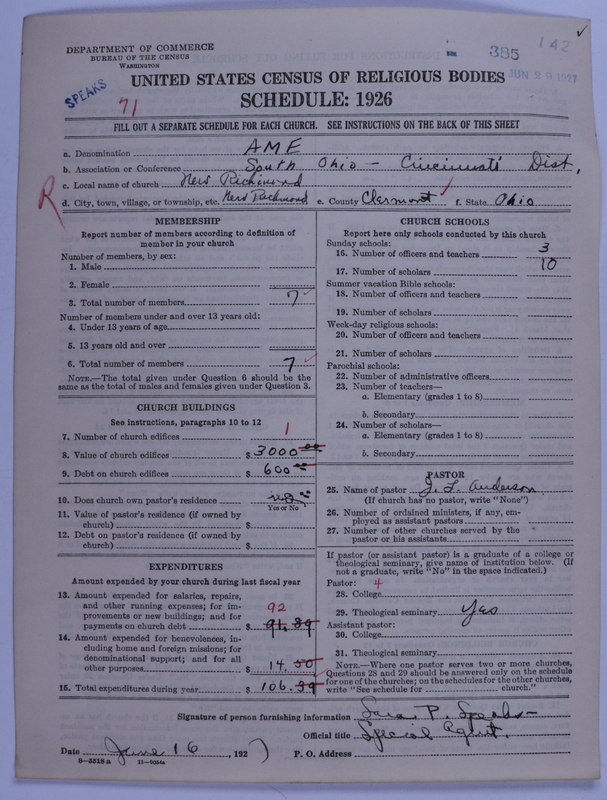 DEPARTMENT OF COMMERCE
BUREAU OF THE CENSUS
WASHINGTON
SPEAKS
71
385
142
JUN 29 1927
UNITED STATES CENSUS OF RELIGIOUS BODIES
SCHEDULE: 1926
FILL OUT A SEPARATE SCHEDULE FOR EACH CHURCH. SEE INSTRUCTIONS ON THE BACK OF THIS SHEET
a. Denomination AME
b. Association or Conference South Ohio - Cincinnati Dist,
c. Local name of church New Richmond
R
d. City, town, village, or township, etc. New Richmond e. County Clermont f. State Ohio
MEMBERSHIP
Report number of members according to definition of
member in your church
Number of members, by sex:
1. Male
2. Female
3. Total number of members 7
Number of members under and over 13 years old:
4. Under 13 years of age
5. 13 years old and over
6. Total number of members 7
NOTE.—The total given under Question 6 should be the
same as the total of males and females given under Question 3.
CHURCH BUILDINGS
See instructions, paragraphs 10 to 12
7. Number of church edifices 1
8. Value of church edifices $ 3000 00
9. Debt on church edifices $ 600 00
10. Does church own pastor's residence no
Yes or No
11. Value of pastor's residence (if owned by
church) $
12. Debt on pastor's residence (if owned by
church) $
EXPENDITURES
Amount expended by your church during last fiscal year
13. Amount expended for salaries, repairs,
and other running expenses; for im-
provements or new buildings; and for
payments on church debt $ 91.89
92
14. Amount expended for benevolences, in-
cluding home and foreign missions; for
denominational support; and for all
other purposes 14.50
15. Total expenditures during year $ 106.39
CHURCH SCHOOLS
Report here only schools conducted by this church
Sunday schools:
16. Number of officers and teachers 3
17. Number of scholars 10
Summer vacation Bible schools:
18. Number of officers and teachers
19. Number of scholars
Week-day religious schools:
20. Number of officers and teachers
21. Number of scholars
Parochial schools:
22. Number of administrative officers
23. Number of teachers—
a. Elementary (grades 1 to 8)
b. Secondary
24. Number of scholars—
a. Elementary (grades 1 to 8)
b. Secondary
PASTOR
25. Name of pastor J. L. Anderson
(If church has no pastor, write "None")
26. Number of ordained ministers, if any, em-
ployed as assistant pastors
27. Number of other churches served by the
pastor or his assistants
If pastor (or assistant pastor) is a graduate of a college or
theological seminary, give name of institution below. (If
not a graduate, write "No" in the space indicated.)
Pastor: 4
28. College
29. Theological seminary Yes
Assistant pastor:
30. College
31. Theological seminary
NOTE.—Where one pastor serves two or more churches,
Questions 28 and 29 should be answered only on the schedule
for one of the churches; on the schedules for the other churches,
write "See schedule for church."
Signature of person furnishing information Sara P. Speaks
Official title Special Agent.
Date June 16, 1927
P. O. Address
8-5518a 11-9054a